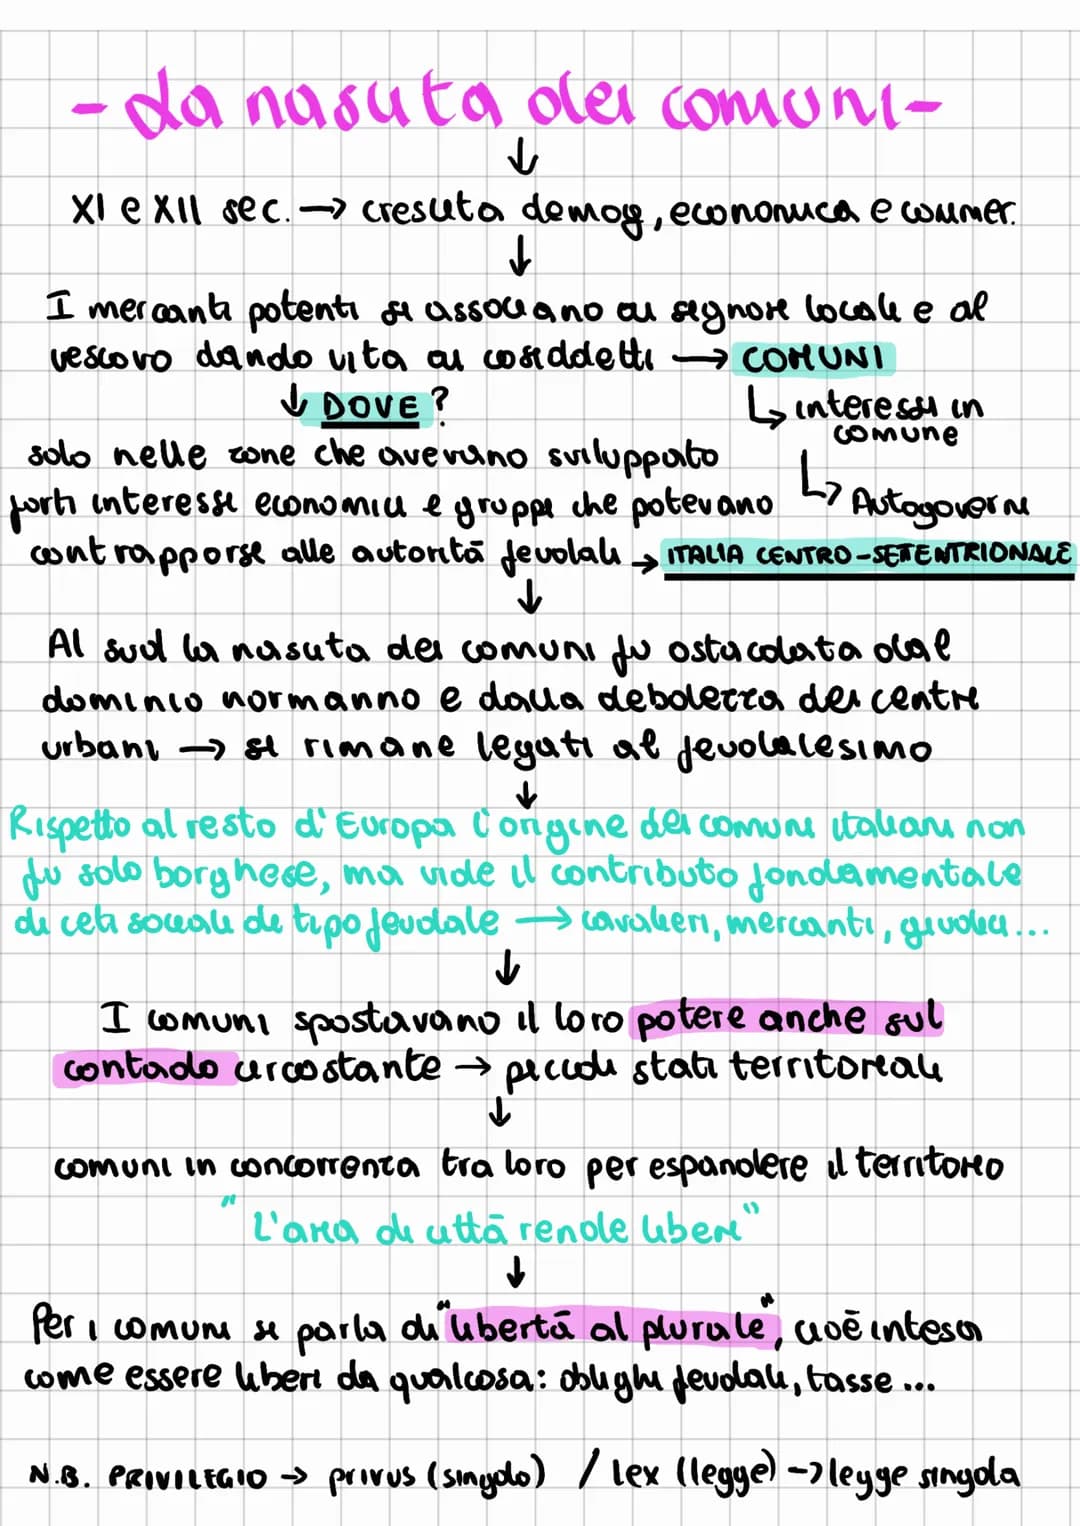 - La nascita dei comuni -
↓
XI e XII sec. → crescita demog, economica e commer.
↓
I mercanti potenti si associano ai signore locali e al
vescovo dando vita ai cosiddetti → COMUNI
↓ DOVE?
↳ interessi in
comune
↳ Autogoverni
solo nelle zone che avevano sviluppato
forti interessi economici e gruppi che potevano
contrapporsi alle autorità feudali → ITALIA CENTRO-SETTENTRIONALE
↓
Al sud la nascita dei comuni fu ostacolata dal
dominio normanno e dalla debolezza dei centri
urbani → si rimane legati al feudalesimo
↓
Rispetto al resto d'Europa l'origine dei comuni italiani non
fu solo borghese, ma vide il contributo fondamentale
di ceti sociali di tipo feudale → cavalieri, mercanti, giudici...
↓
I comuni spostavano il loro potere anche sul
contado circostante → piccoli stati territoriali
↓
comuni in concorrenza tra loro per espandere il territorio
"L'aria di città rende liberi"
↓
Per i comuni si parla di "libertà al plurale", cioè intesa
come essere liberi da qualcosa: obblighi feudali, tasse...
N.B. PRIVILEGIO → privus (singolo) / lex (legge) → legge singola